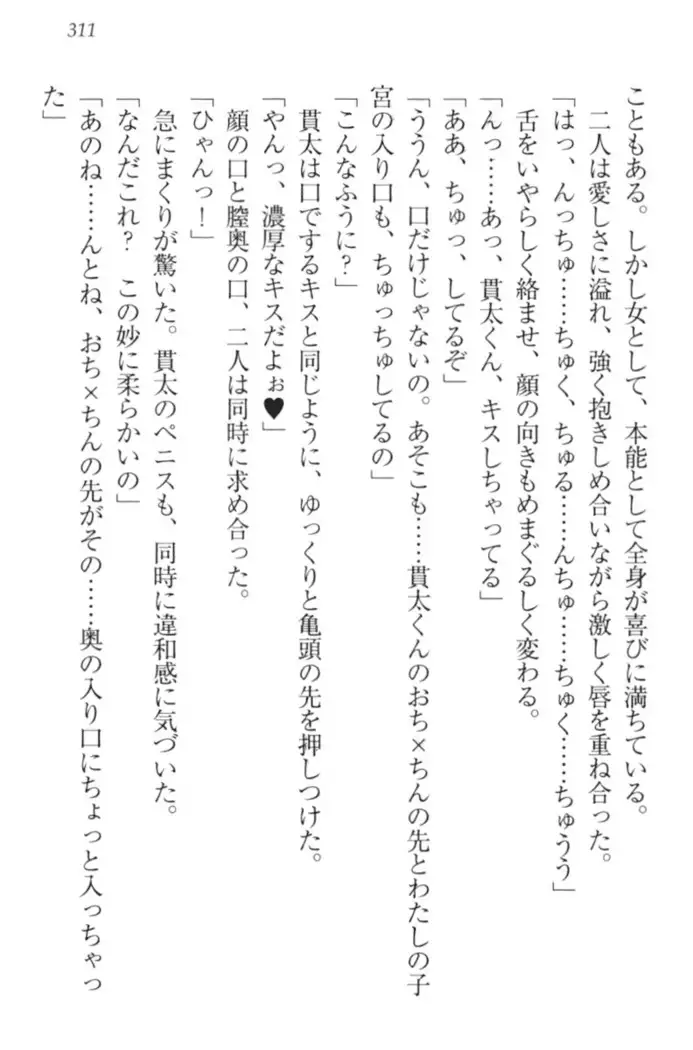 311
こともある。しかし女として、本能として全身が喜びに満ちている。
二人は愛しさに溢れ、強く抱きしめ合いながら激しく唇を重ね合った。
「はっ、んっちゅ……ちゅく、ちゅる……んちゅ……ちゅく……ちゅうう」
舌をいやらしく絡ませ、顔の向きもめまぐるしく変わる。
「んっ……あっ、貫太くん、キスしちゃってる」
「ああ、ちゅっ、してるぞ」
「ううん、口だけじゃないの。あそこも……貫太くんのおち×ちんの先とわたしの子
宮の入り口も、ちゅっちゅしてるの」
「こんなふうに?」
貫太は口でするキスと同じように、ゆっくりと亀頭の先を押しつけた。
「やんっ、濃厚なキスだよぉ♥」
顔の口と膣奥の口、二人は同時に求め合った。
「ひゃんっ!」
急にまくりが驚いた。貫太のペニスも、同時に違和感に気づいた。
「なんだこれ?　この妙に柔らかいの」
「あのね……んとね、おち×ちんの先がその……奥の入り口にちょっと入っちゃっ
た」